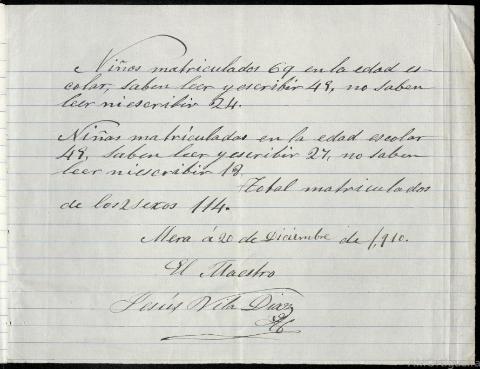 Niños matriculados 69 en la edad es-
colar, saben leer y escribir 45, no saben
leer ni escribir 24.
Niñas matriculadas en la edad escolar
45, saben leer y escribir 27, no saben
leer ni escribir 18
Total matriculados
de los 2 sexos 114.
Mera á 20 de Diciembre de 1,910.
El Maestro
Jesús Vila Diaz